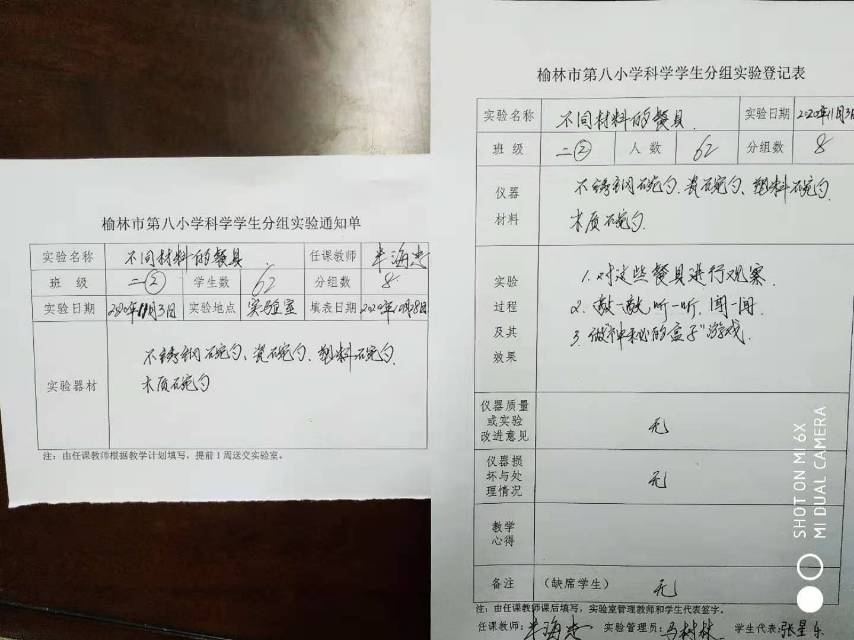 榆林市第八小学科学学生分组实验通知单
实验名称 不同材料的餐具 任课教师
班 级 二② 学生数 62 分组数 8
实验日期 2020年11月3日 实验地点 实验室 填表日期
实验器材
不锈钢碗勺、瓷碗勺、塑料碗勺
木质碗勺
注：由任课教师根据教学计划填写，提前1周送交实验室。
榆林市第八小学科学学生分组实验登记表
实验名称 不同材料的餐具 实验日期 2020年11月3日
班 级 二② 人 数 62 分组数 8
仪器
材料
不锈钢碗勺、瓷碗勺、塑料碗勺
木质碗勺
实验
过程
及其
效果
1. 对这些餐具进行观察
2. 敲一敲 听一听 闻一闻
3. 做“神秘的盒子”游戏
仪器质量
或实验
改进意见
无
仪器损
坏与处
理情况
无
教学
心得
备注 （缺席学生） 无
注：由任课教师课后填写，实验室管理教师和学生代表签字。
任课教师： 实验管理员：马树林 学生代表：
SHOT ON MI 6X
MI DUAL CAMERA